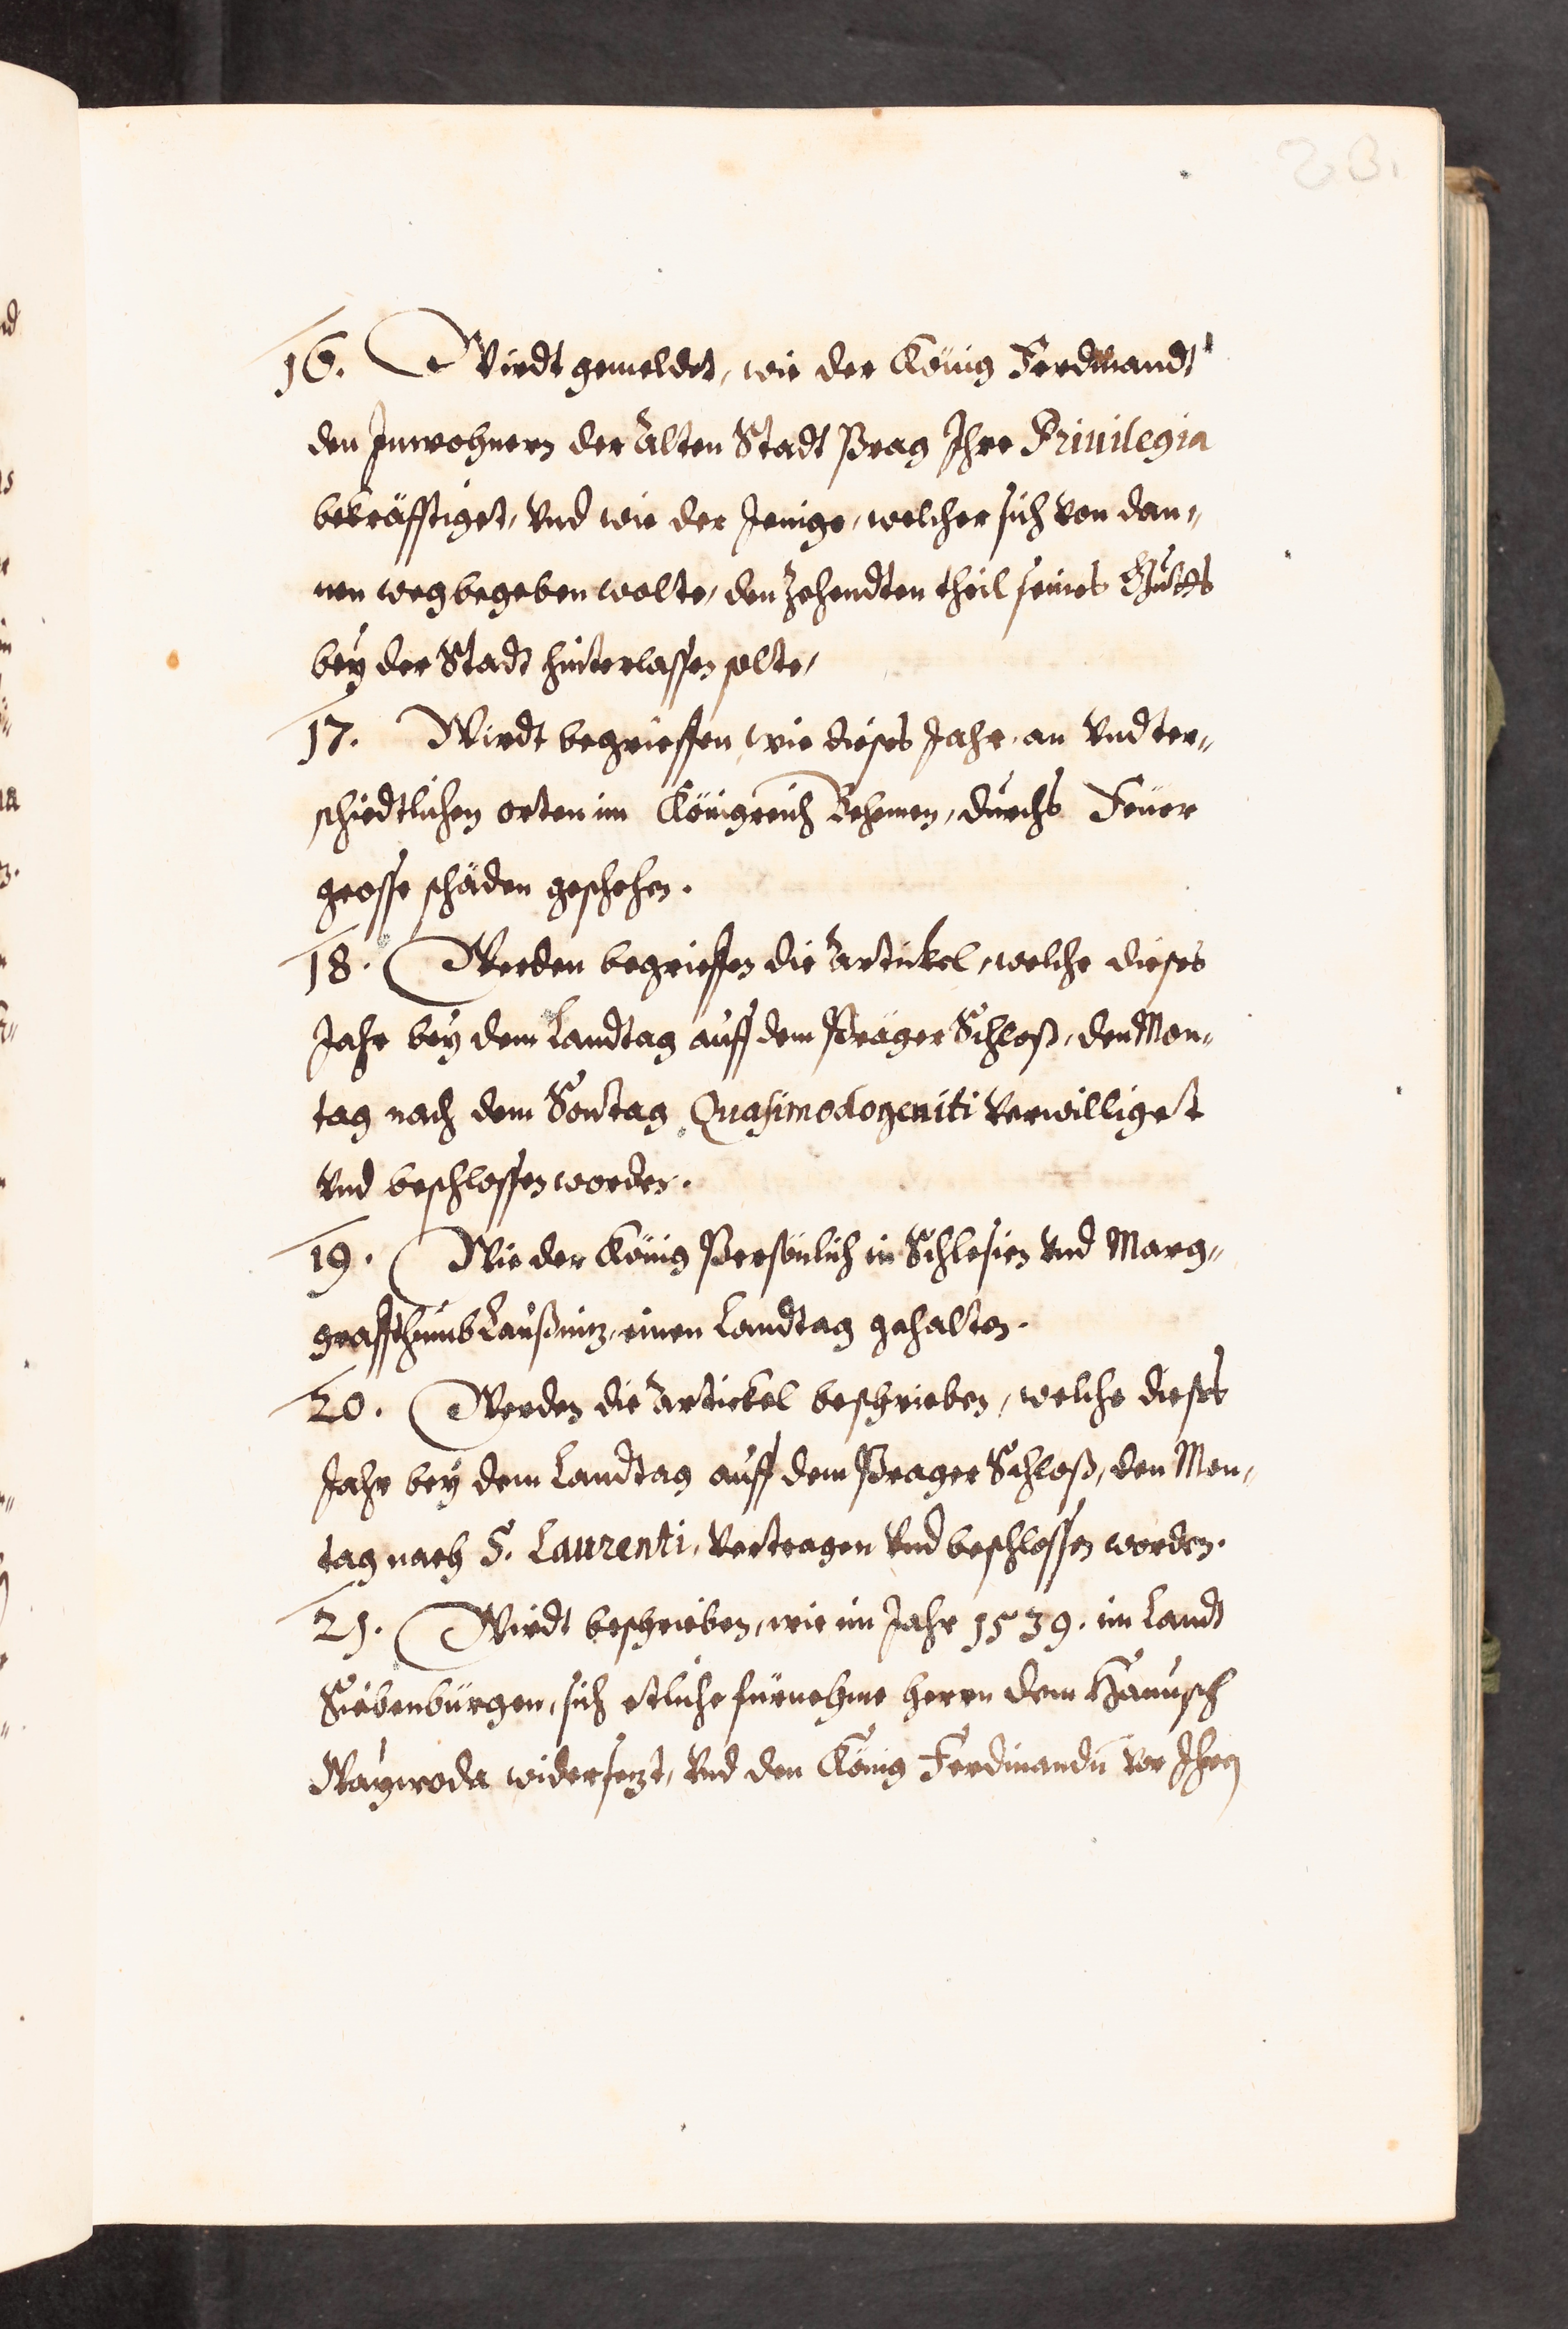 23.
16. Wirdt gemeldet, wie der König Ferdinandt
den Inwohnern der Alten Stadt Prag Ihre Priuilegia
bekräfftiget, Vnd wie der Jenige, welcher sich von dan„
nen weg begeben wolte, den Zehendten theil seines Gutts
bey der Stadt hinterlassen solte,
17. Wirdt begrieffen, wie dieses Jahr, an Vndter„
schiedtlichen orten im Königreich Behemen, durchs Feüer
grosse schäden geschehen.
18. Werden begrieffen die Artickel, welche dieses
Jahr bey dem Landtag auff dem Präger Schloß, den Mon„
tag nach dem Sontag Quasimodogeniti Verwilliget
Vnd beschlossen worden.
19. Wie der König Persönlich in Schlesien Vnd Marg„
graffthumb Laußnitz, einen Landtag gehalten.
20. Werden die Artickel beschrieben, welche dieses
Jahr bey dem Landtag auff dem Prager Schloß, den Mon„
tag nach S. Laurenti, Vertragen Vnd beschlossen worden.
21. Wirdt beschrieben, wie im Jahr 1539. im Landt
Siebenbürgen, sich etliche fürnehme Herrn dem Hanusch
Waywoda widersetzt, Vnd den König Ferdinandū vor Ihren